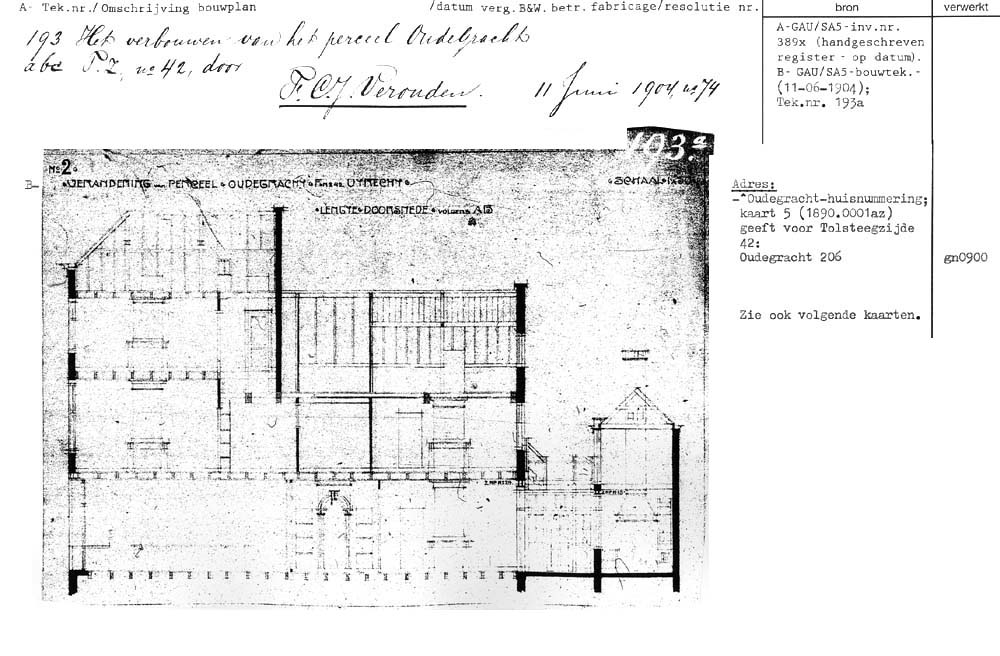 A- Tek.nr./Omschrijving bouwplan /datum verg.B&W.betr.fabricage/resolutie nr. bron verwerkt
193 Het verbouwen van het perceel Oudegracht
abc T.Z. no 42, door
F.C.J. Verouden. 11 Juni 1904, no 74
A-GAU/SA5-inv.nr.
389x (handgeschreven
register - op datum).
B- GAU/SA5-bouwtek.-
(11-06-1904);
Tek.nr. 193a
193.a
No 2.
B-
VERANDERING van PERCEEL OUDEGRACHT T.Z. 42 UTRECHT
SCHAAL
LENGTE DOORSNEDE volgens AB
Adres:
-^Oudegracht-huisnummering;
kaart 5 (1890.0001az)
geeft voor Tolsteegzijde
42:
Oudegracht 206 gn0900
Zie ook volgende kaarten.